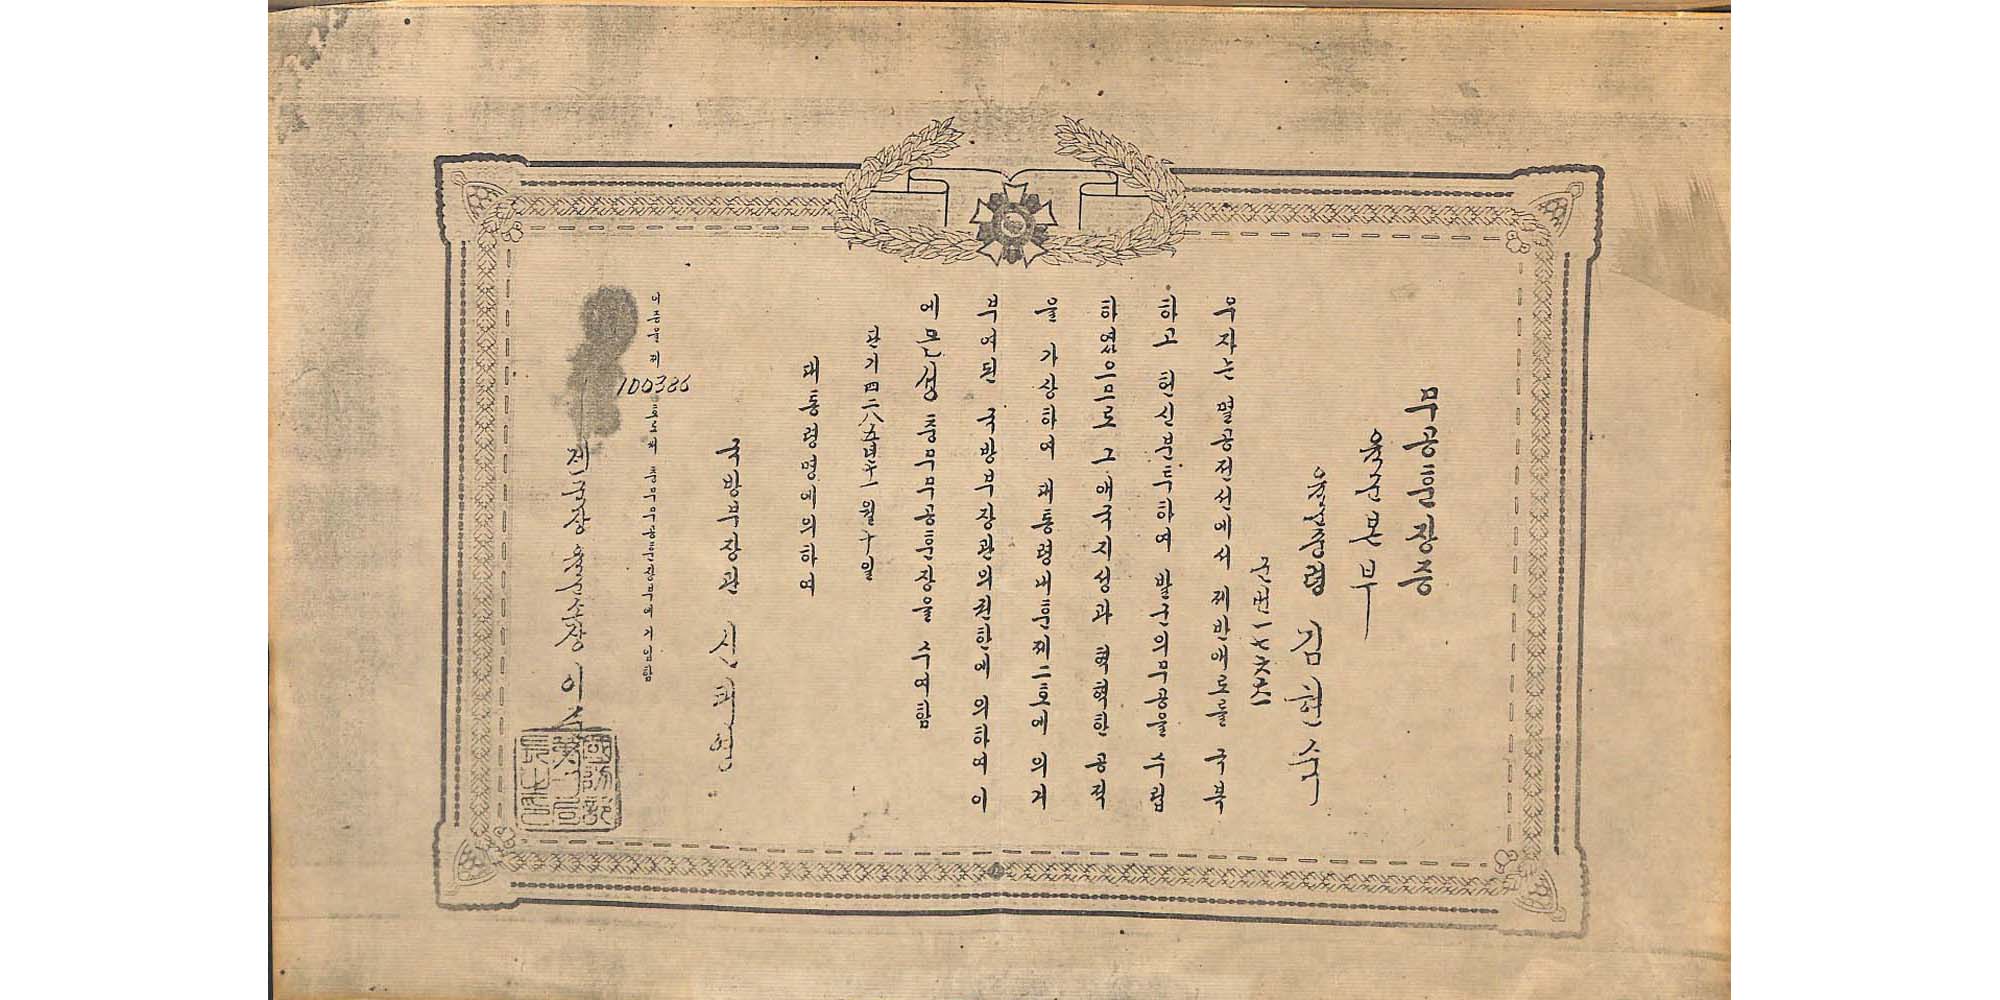 무공훈장증
육군본부
육군중령 김현수
군번 一七六六一
우자는 멸공전선에서 제반애로를 극복
하고 헌신분투하여 발군의무공을 수립
하였으므로 그 애국지성과 혁혁한 공적
을 가상하여 대통령내훈제二호에 의거
부여된 국방부장관의권한에 의하여 이
에 은성 충무무공훈장을 수여함
단기四二八五년十一월十일
대통령명에의하여
국방부장관 신태영
이증을제100386호로써 충무무공훈장부에 기입함
제一국장 육군소장 이
國防部
第一局
長之印